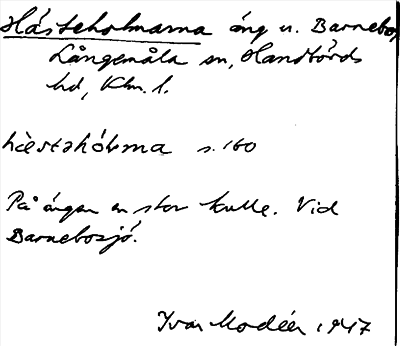 Hästeholmarna äng u. Barnebo,
Långemåla sn, Handbörds
hd, Klm. l.
hæstəhólma s. 160
På ängen en stor kulle. Vid
Barnebosjö.
Ivar Modéer 1947